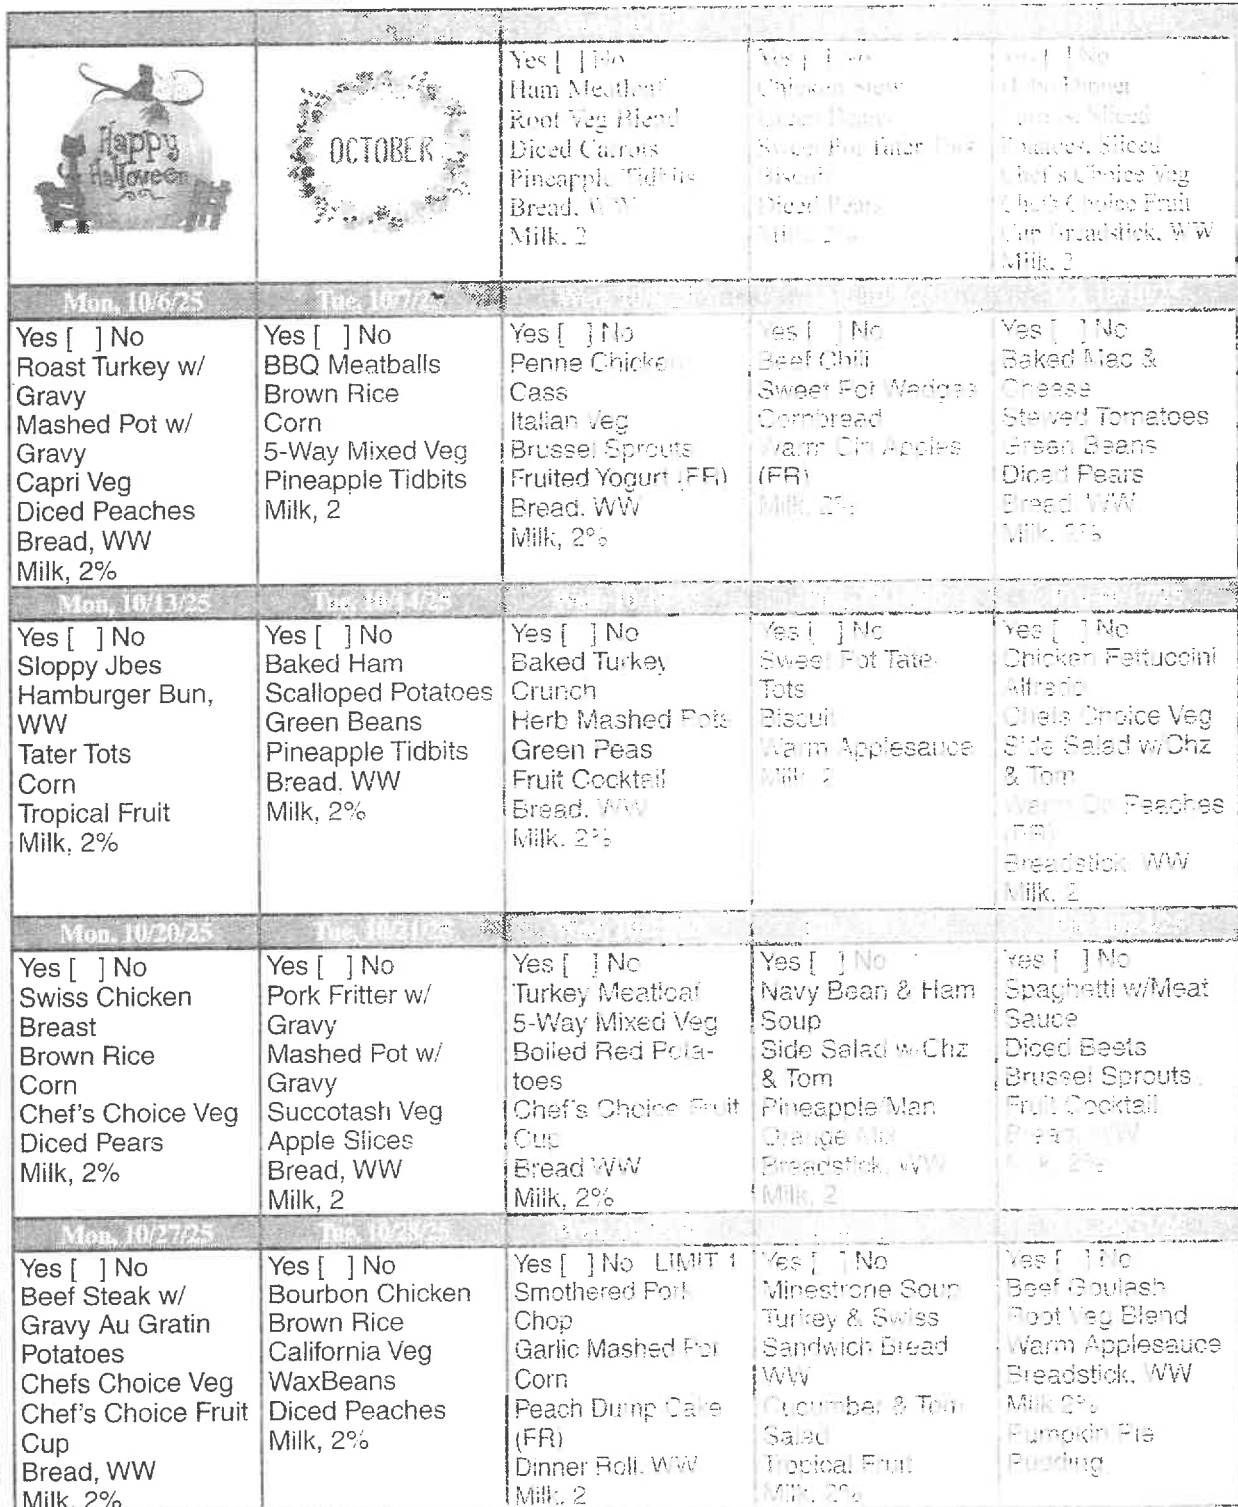 Happy
Halloween
OCTOBER
Yes [ ] No
Ham Meatloaf
Root Veg Blend
Diced Carrots
Pineapple Tidbits
Bread, WW
Milk, 2
Yes [ ] No
Chicken Stew
Sweet Pot Tater Tots
Biscuit
Diced Pears
Milk, 2%
Yes [ ] No
Dinner
Sliced
Potatoes, Sliced
Chef's Choice Veg
Chef's Choice Fruit
Cup Breadstick, WW
Milk, 2
Mon, 10/6/25
Tue, 10/7/25
Yes [ ] No
Roast Turkey w/
Gravy
Mashed Pot w/
Gravy
Capri Veg
Diced Peaches
Bread, WW
Milk, 2%
Yes [ ] No
BBQ Meatballs
Brown Rice
Corn
5-Way Mixed Veg
Pineapple Tidbits
Milk, 2
Yes [ ] No
Penne Chicken
Cass
Italian Veg
Brussel Sprouts
Fruited Yogurt (FR)
Bread. WW
Milk, 2%
Yes [ ] No
Beef Chili
Sweet Pot Wedges
Cornbread
Warm Cin Apples
(FR)
Milk, 2%
Yes [ ] No
Baked Mac &
Cheese
Stewed Tomatoes
Green Beans
Diced Pears
Bread, WW
Milk, 2%
Mon, 10/13/25
Tue, 10/14/25
Yes [ ] No
Sloppy Jbes
Hamburger Bun,
WW
Tater Tots
Corn
Tropical Fruit
Milk, 2%
Yes [ ] No
Baked Ham
Scalloped Potatoes
Green Beans
Pineapple Tidbits
Bread. WW
Milk, 2%
Yes [ ] No
Baked Turkey
Crunch
Herb Mashed Pots
Green Peas
Fruit Cocktail
Bread, WW
Milk. 2%
Yes [ ] No
Sweet Pot Tater
Tots
Biscuit
Warm Applesauce
Milk, 2
Yes [ ] No
Chicken Fettuccini
Alfredo
Chefs Choice Veg
Side Salad w/Chz
& Tom
Warm Peaches
(FR)
Breadstick, WW
Milk, 2
Mon, 10/20/25
Tue, 10/21/25
Yes [ ] No
Swiss Chicken
Breast
Brown Rice
Corn
Chef's Choice Veg
Diced Pears
Milk, 2%
Yes [ ] No
Pork Fritter w/
Gravy
Mashed Pot w/
Gravy
Succotash Veg
Apple Slices
Bread, WW
Milk, 2
Yes [ ] No
Turkey Meatloaf
5-Way Mixed Veg
Boiled Red Pota-
toes
Chef's Choice Fruit
Cup
Bread WW
Milk, 2%
Yes [ ] No
Navy Bean & Ham
Soup
Side Salad w/Chz
& Tom
Pineapple/Man
Orange Mix
Breadstick, WW
Milk, 2
Yes [ ] No
Spaghetti w/Meat
Sauce
Diced Beets
Brussel Sprouts
Fruit Cocktail
Bread, WW
Milk, 2%
Mon, 10/27/25
Tue, 10/28/25
Yes [ ] No
Beef Steak w/
Gravy Au Gratin
Potatoes
Chefs Choice Veg
Chef's Choice Fruit
Cup
Bread, WW
Milk, 2%
Yes [ ] No
Bourbon Chicken
Brown Rice
California Veg
WaxBeans
Diced Peaches
Milk, 2%
Yes [ ] No LIMIT 1
Smothered Pork
Chop
Garlic Mashed Pot
Corn
Peach Dump Cake
(FR)
Dinner Roll, WW
Milk, 2
Yes [ ] No
Minestrone Soup
Turkey & Swiss
Sandwich Bread
WW
Cucumber & Tom
Salad
Tropical Fruit
Milk, 2%
Yes [ ] No
Beef Goulash
Root Veg Blend
Warm Applesauce
Breadstick, WW
Milk 2%
Pumpkin Pie
Pudding